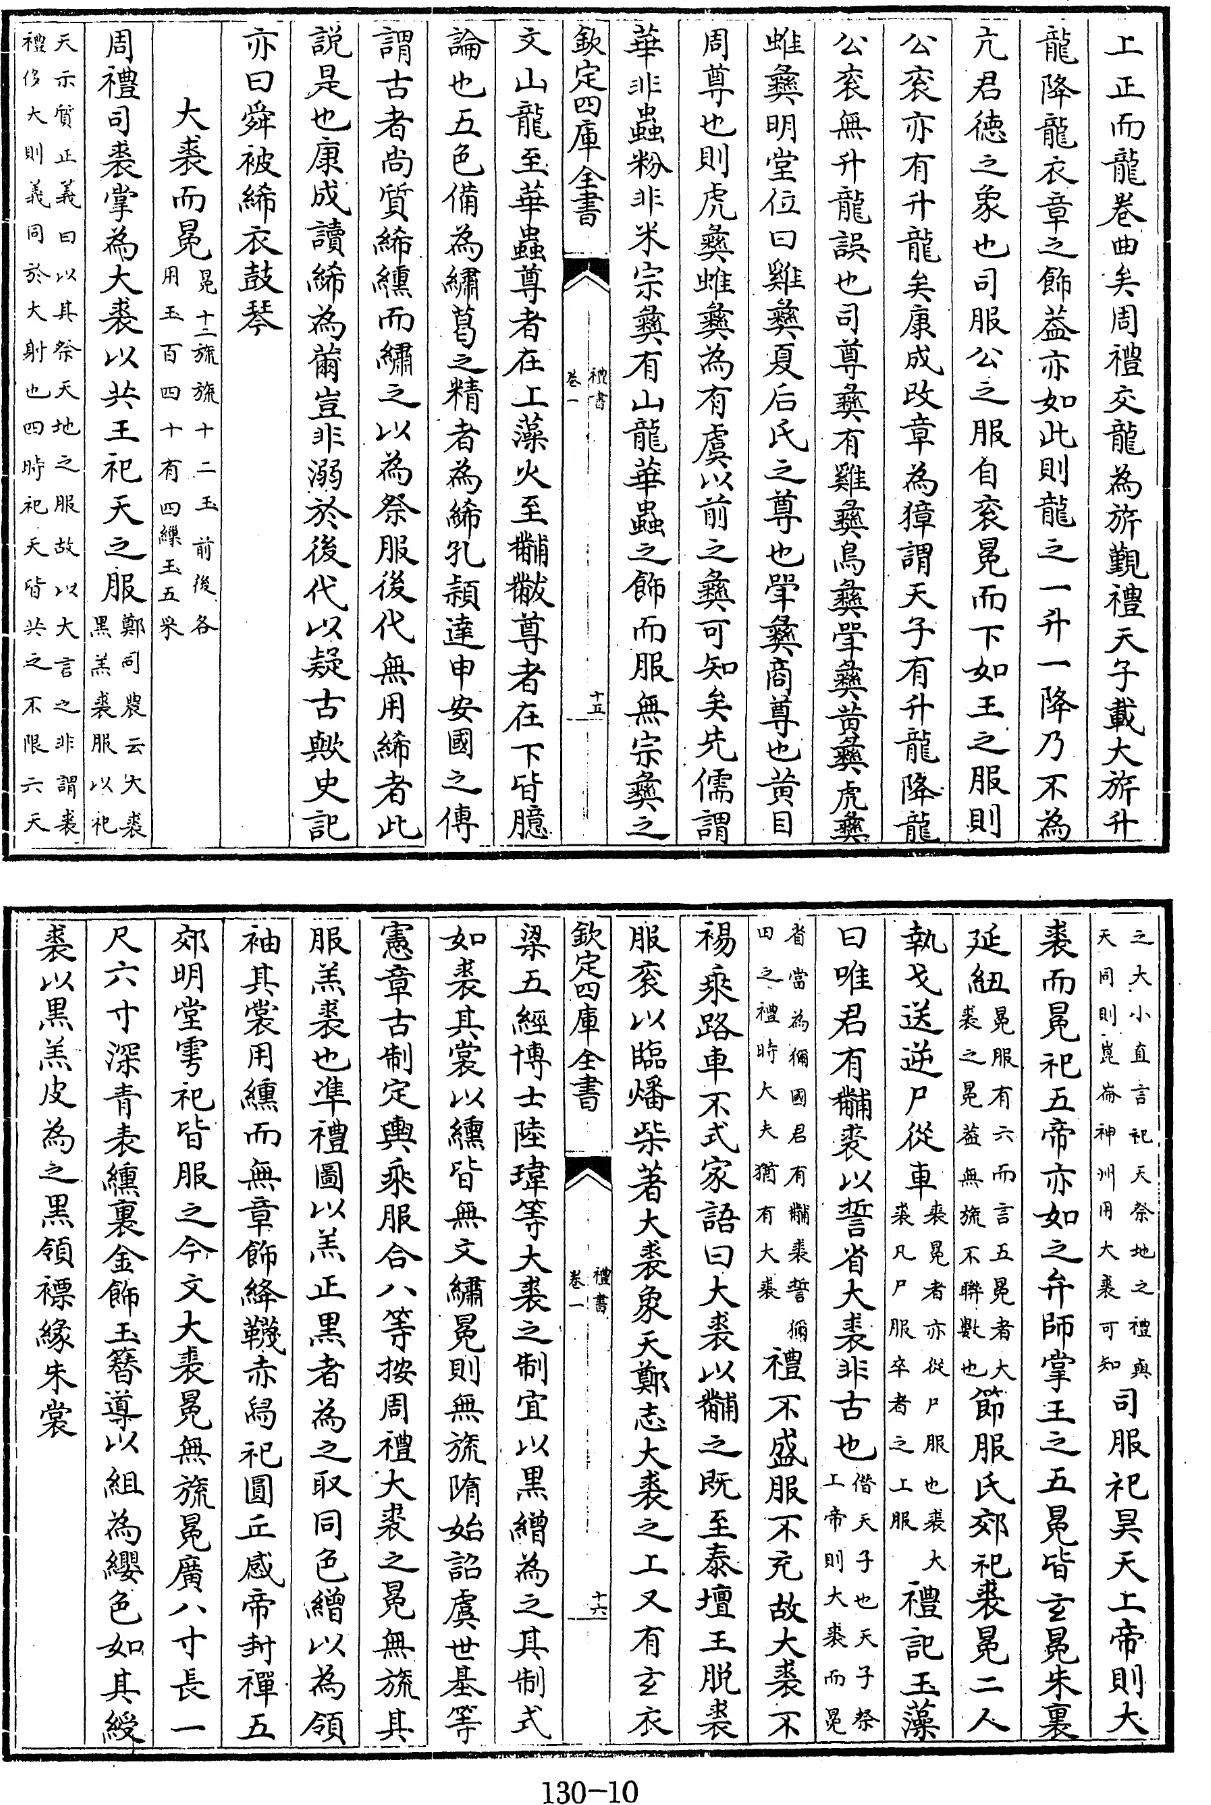 上正而龍卷曲矣周禮交龍為旂覲禮天子載大旂升
龍降龍衣章之飾葢亦如此則龍之一升一降乃不為
亢君德之象也司服公之服自衮冕而下如王之服則
公衮亦有升龍矣康成改章為獐謂天子有升龍降龍
公衮無升龍誤也司尊彝有雞彝鳥彝斝彝黄彝虎彝
蜼彝明堂位曰雞彝夏后氏之尊也斝彝商尊也黄目
周尊也則虎彝蜼彝為有虞以前之彝可知矣先儒謂
華非蟲粉非米宗彝有山龍華蟲之飾而服無宗彝之
欽定四庫全書
禮書
卷一
十五
文山龍至華蟲尊者在上藻火至黼黻尊者在下皆臆
論也五色備為繡葛之精者為絺孔穎達申安國之傳
謂古者尚質絺纁而繡之以為祭服後代無用絺者此
説是也康成讀絺為黹豈非溺於後代以疑古歟史記
亦曰舜被絺衣鼓琴
大裘而冕
冕十二旒旒十二玉前後各
用玉百四十有四繅玉五采
周禮司裘掌為大裘以共王祀天之服
鄭司農云大裘
黑羔裘服以祀
天示質正義曰以其祭天地之服故以大言之非謂裘
禮侈大則義同於大射也四時祀天皆共之不限六天
之大小直言祀天祭地之禮與
天同則崑崙神州用大裘可知
司服祀昊天上帝則大
裘而冕祀五帝亦如之弁師掌王之五冕皆玄冕朱裏
延紐
冕服有六而言五冕者大
裘之冕葢無旒不聨數也
節服氏郊祀裘冕二人
執戈送逆尸從車
裘冕者亦從尸服也裘大
裘凡尸服卒者之上服
禮記玉藻
曰唯君有黼裘以誓省大裘非古也
僭天子也天子祭
上帝則大裘而冕
省當為獮國君有黼裘誓獮
田之禮時大夫猶有大裘
禮不盛服不充故大裘不
裼乘路車不式家語曰大裘以黼之既至泰壇王脱裘
服衮以臨燔柴著大裘象天鄭志大裘之上又有玄衣
欽定四庫全書
禮書
卷一
十六
梁五經博士陸瑋等大裘之制宜以黑繒為之其制式
如裘其裳以纁皆無文繡冕則無旒隋始詔虞世基等
憲章古制定輿乘服合八等按周禮大裘之冕無旒其
服羔裘也凖禮圖以羔正黑者為之取同色繒以為領
袖其裳用纁而無章飾絳韈赤舄祀圓丘感帝封禪五
郊明堂雩祀皆服之今文大裘冕無旒冕廣八寸長一
尺六寸深青表纁裏金飾玉簪導以組為纓色如其綬
裘以黑羔皮為之黑領褾緣朱裳
130-10